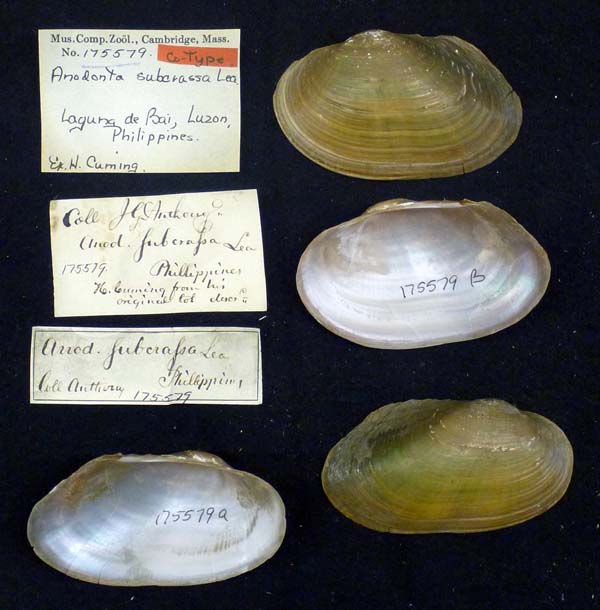 Mus. Comp. Zoöl., Cambridge, Mass.
No. 175579. Co-Type
Anodonta subcrassa Lea.
Laguna de Bai, Luzon,
Philippines.
Ex. H. Cuming.
Coll J G Anthony
Anod. subcrassa Lea
175579. Phillippines
H. Cuming from his
original lot
Anod. subcrassa Lea
Coll Anthony Phillippines
175579
175579 B
175579 a